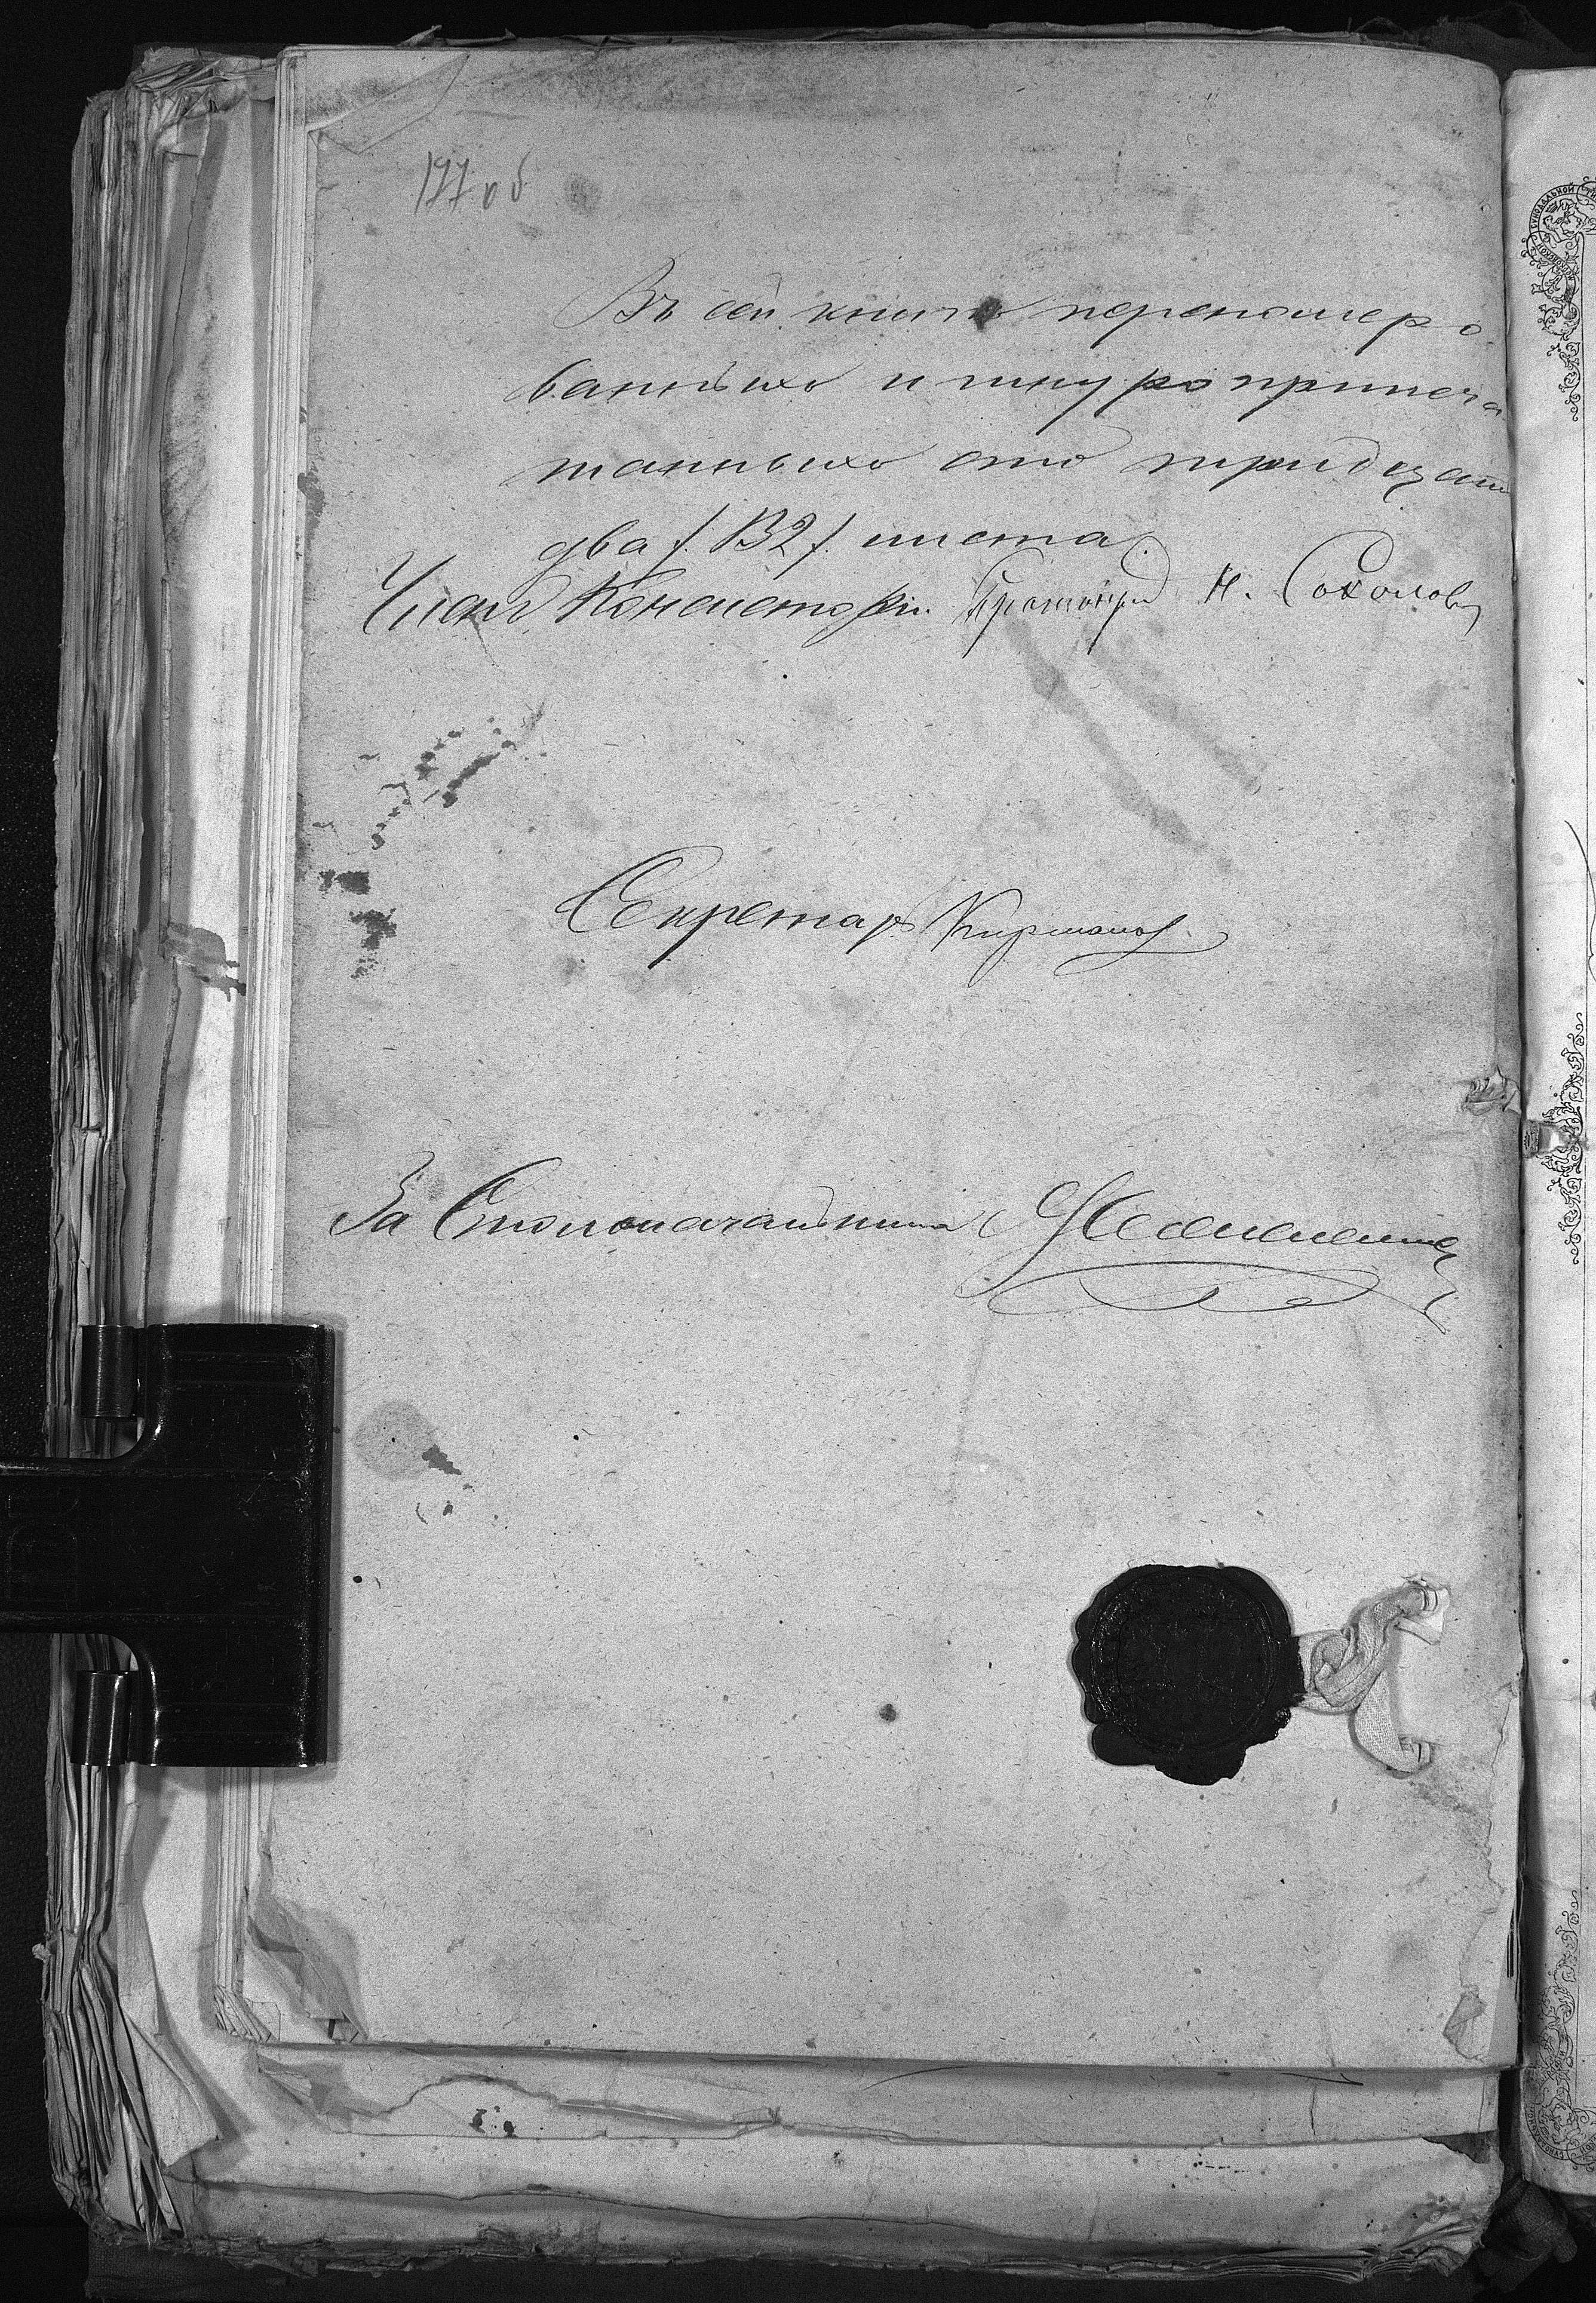 177 об
Въ сей книгѣ переномеро
ванныхъ и шнуроприпеча
танныхъ сто тридцать
два /. 132 /. листа.
Членъ Консисторіи. Протоіерей Н. Соколовъ
Секретарь
За Столоначальника